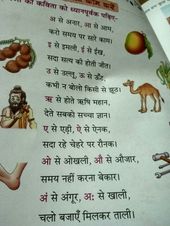 की कविता को ध्यानपूर्वक पढ़िए-
अ से अनार, आ से आम,
करो समय पर सारे काम।
इ से इमली, ई से ईख,
सदा सत्य की होती जीत।
उ से उल्लू, ऊ से ऊँट,
कभी न बोलो किसी से झूठ।
ऋ से होते ऋषि महान,
देते सबको सच्चा ज्ञान।
ए से एड़ी, ऐ से ऐनक,
सदा रहे चेहरे पर रौनक।
ओ से ओखली, औ से औजार,
समय नहीं करना बेकार।
अं से अंगूर, अः से खाली,
चलो बजाएँ मिलकर ताली।